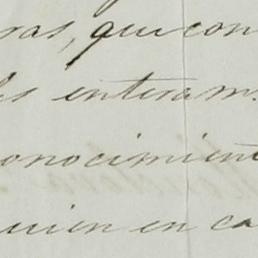 ras, que con
les enteram
onocimient
uien en ca